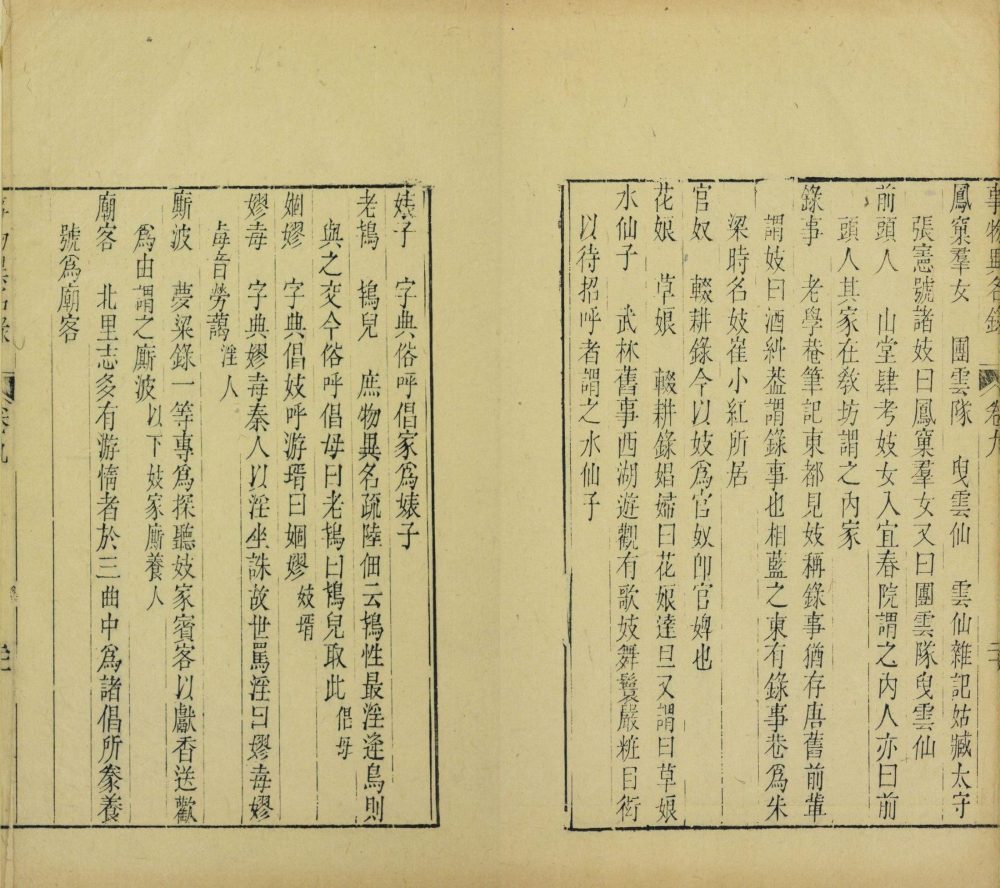 事物異名錄 卷九
鳳窠羣女 團雲隊 曳雲仙 雲仙雜記姑臧太守
張憲號諸妓曰鳳窠羣女又曰團雲隊曳雲仙
前頭人 山堂肆考妓女入宜春院謂之內人亦曰前
頭人其家在敎坊謂之內家
錄事 老學菴筆記東都見妓稱錄事猶存唐舊前輩
謂妓曰酒糾葢謂錄事也相藍之東有錄事巷爲朱
梁時名妓崔小紅所居
官奴 輟耕錄今以妓爲官奴卽官婢也
花娘 草娘 輟耕錄娼婦曰花娘達旦又謂曰草娘
水仙子 武林舊事西湖遊觀有歌妓舞鬟嚴粧自衒
以待招呼者謂之水仙子
婊子 字典俗呼倡家爲婊子
老鴇 鴇兒 庶物異名疏陸佃云鴇性最淫逢鳥則
與之交今俗呼倡母曰老鴇曰鴇兒取此 倡母
婟嫪 字典倡妓呼游壻曰婟嫪 妓壻
嫪毐 字典嫪毐秦人以淫坐誅故世罵淫曰嫪毐嫪
毐音勞藹 淫人
廝波 夢粱錄一等專爲探聽妓家賓客以獻香送歡
爲由謂之廝波 以下妓家廝養人
廟客 北里志多有游惰者於三曲中爲諸倡所豢養
號爲廟客
事物異名錄 卷九